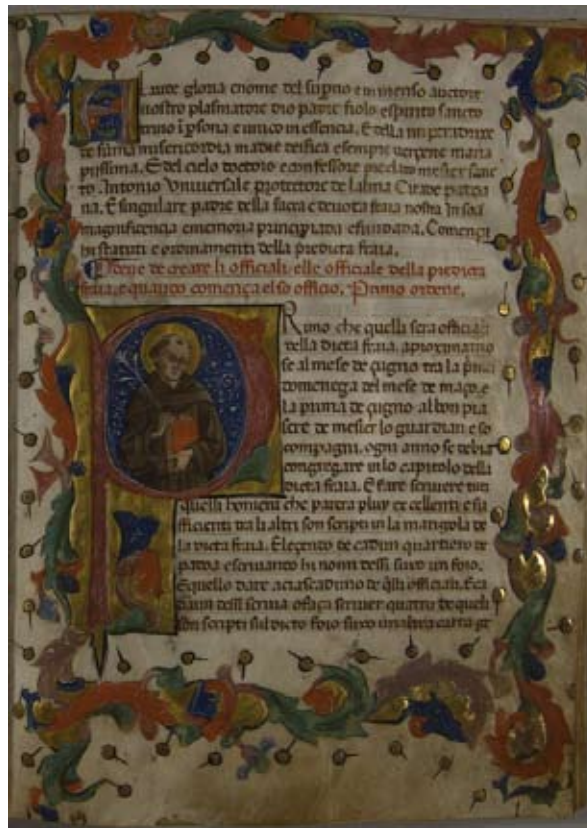 A Laude gloria e nome del sumo e in menso auctore
nostro plasmatore dio padre fiolo e spirito sancto
trino ī psona e unico in essencia. E della imperadrixe
de suma misericordia madre deifica e sempre vergene maria
piissima. E del cielo doctoro e confessore preclaro meser sanc
to Antonio Universale protectore de lalma Citade padoa
na. E singulare padre della sacra e devota fraia nostra In soa
magnificencia e memoria principiada e fundada. Comença
hi statuti e ordinamenti della predicta fraia.
Ordene de creare li officiali elle officiale della predicta
fraia. e quanto comença el so officio. Primo ordene.
Primo che quelli sera officiali
della dicta fraia. aproximando
se al mese de çugno tra la prima
domenega del mese de maço. e
la prima de çugno al bon pia
sere de meser lo guardian e so
compagni. ogni anno se debia
congregare in lo capitolo della
dicta fraia. E fare scrivere tuti
quelli homeni che parera pluy excellenti e su
fficienti tra li altri son scripti in la marigola de
la dicta fraia. Eleçendo de cadun quartiero de
padoa e scrivando hi nomi dessi suxo un foio.
E quello dare a ciascaduno de q̄lli officiali. E ca
daun dessi scriva o faça scriver quatro de queli
son scripti sul dicto foio suxo unaltra carta ge